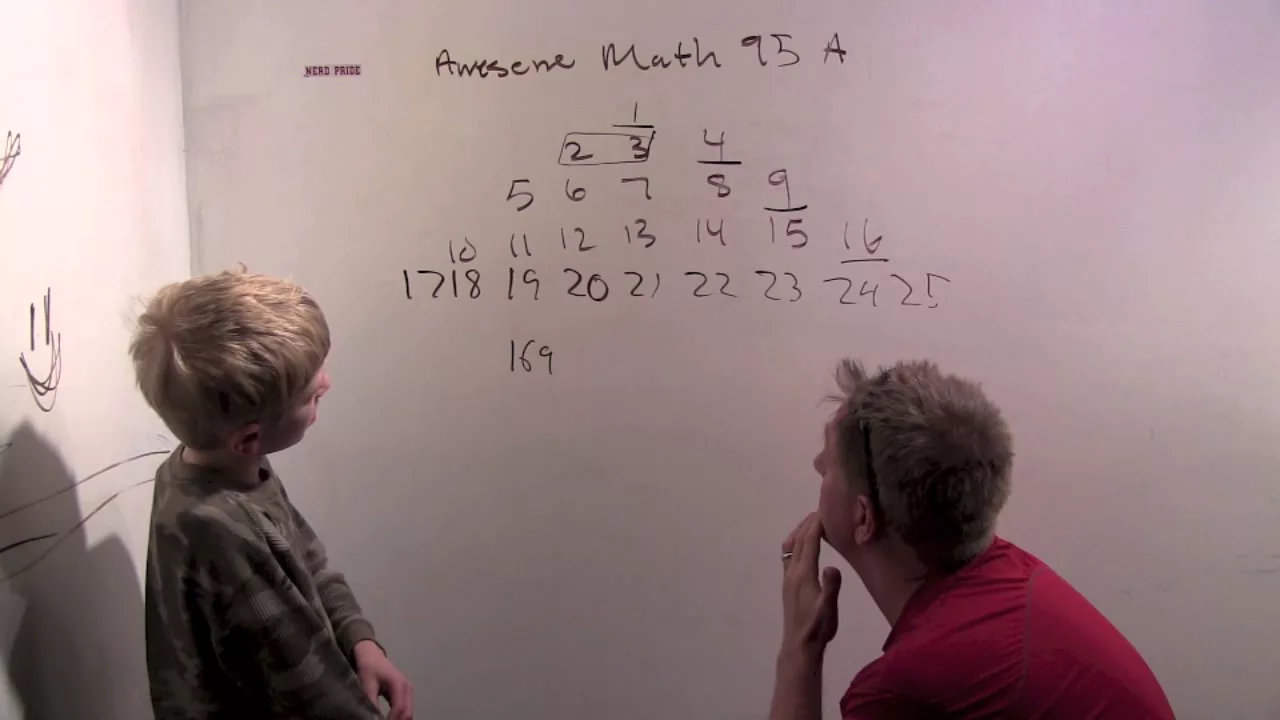 Awesome Math 95 A
NERD PRIDE
1
2 3 4
5 6 7 8 9
10 11 12 13 14 15 16
17 18 19 20 21 22 23 24 25
169